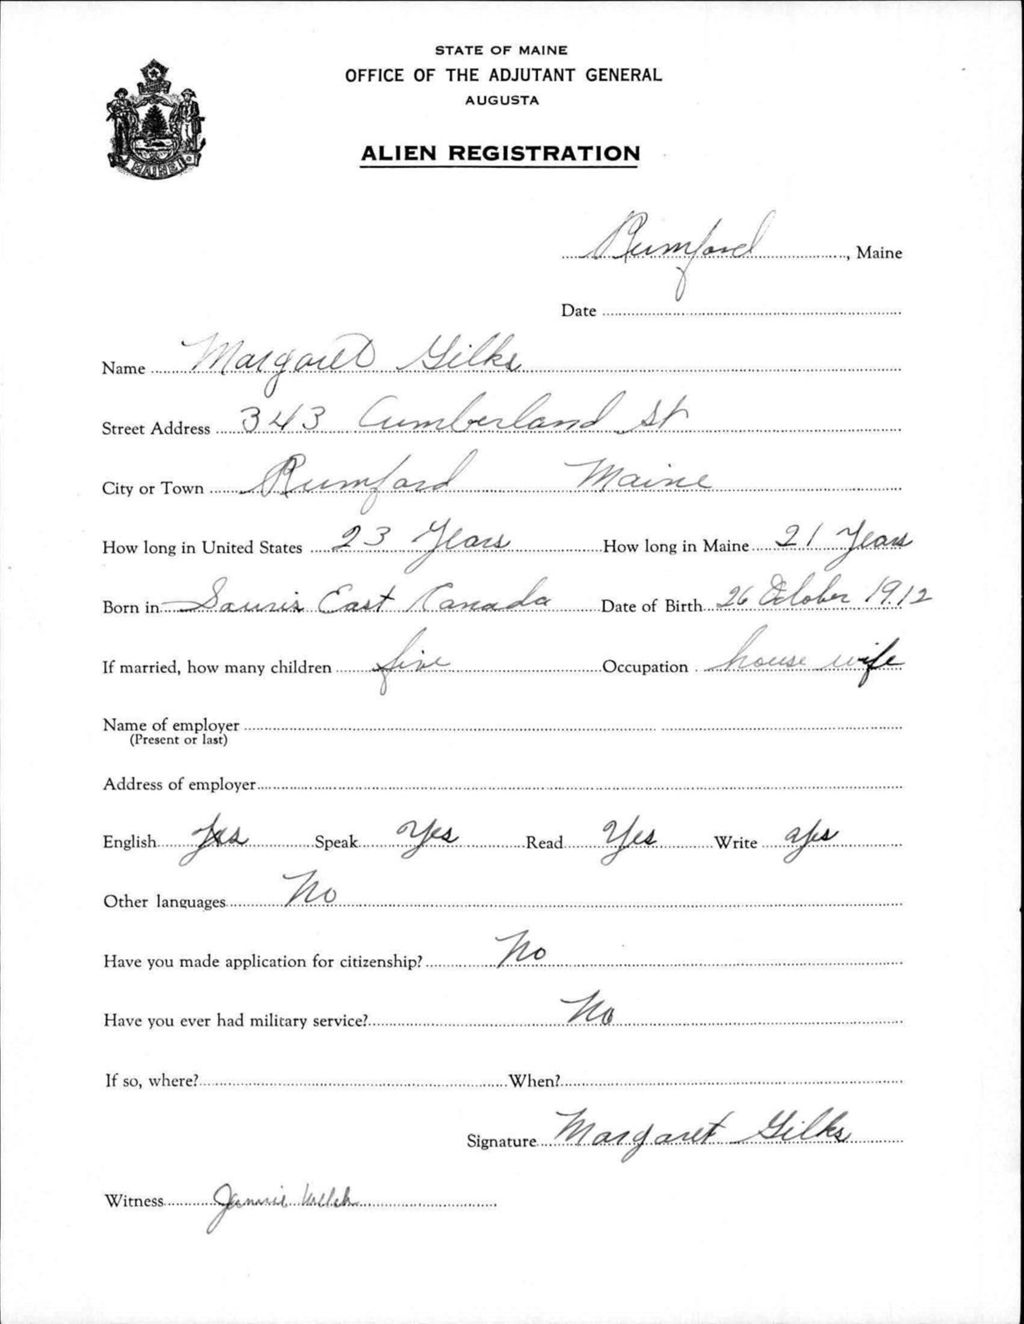 STATE OF MAINE
OFFICE OF THE ADJUTANT GENERAL
AUGUSTA
ALIEN REGISTRATION
MAINE
Rumford, Maine
Date
Name Margaret Gilks
Street Address 343 Cumberland St
City or Town Rumford Maine
How long in United States 23 Years How long in Maine 21 Years
Born in Souris East Canada Date of Birth 26 October 1912
If married, how many children five Occupation house wife
Name of employer
(Present or last)
Address of employer
English Yes Speak Yes Read Yes Write Yes
Other languages No
Have you made application for citizenship? No
Have you ever had military service? No
If so, where? When?
Signature Margaret Gilks
Witness Jennie Welch